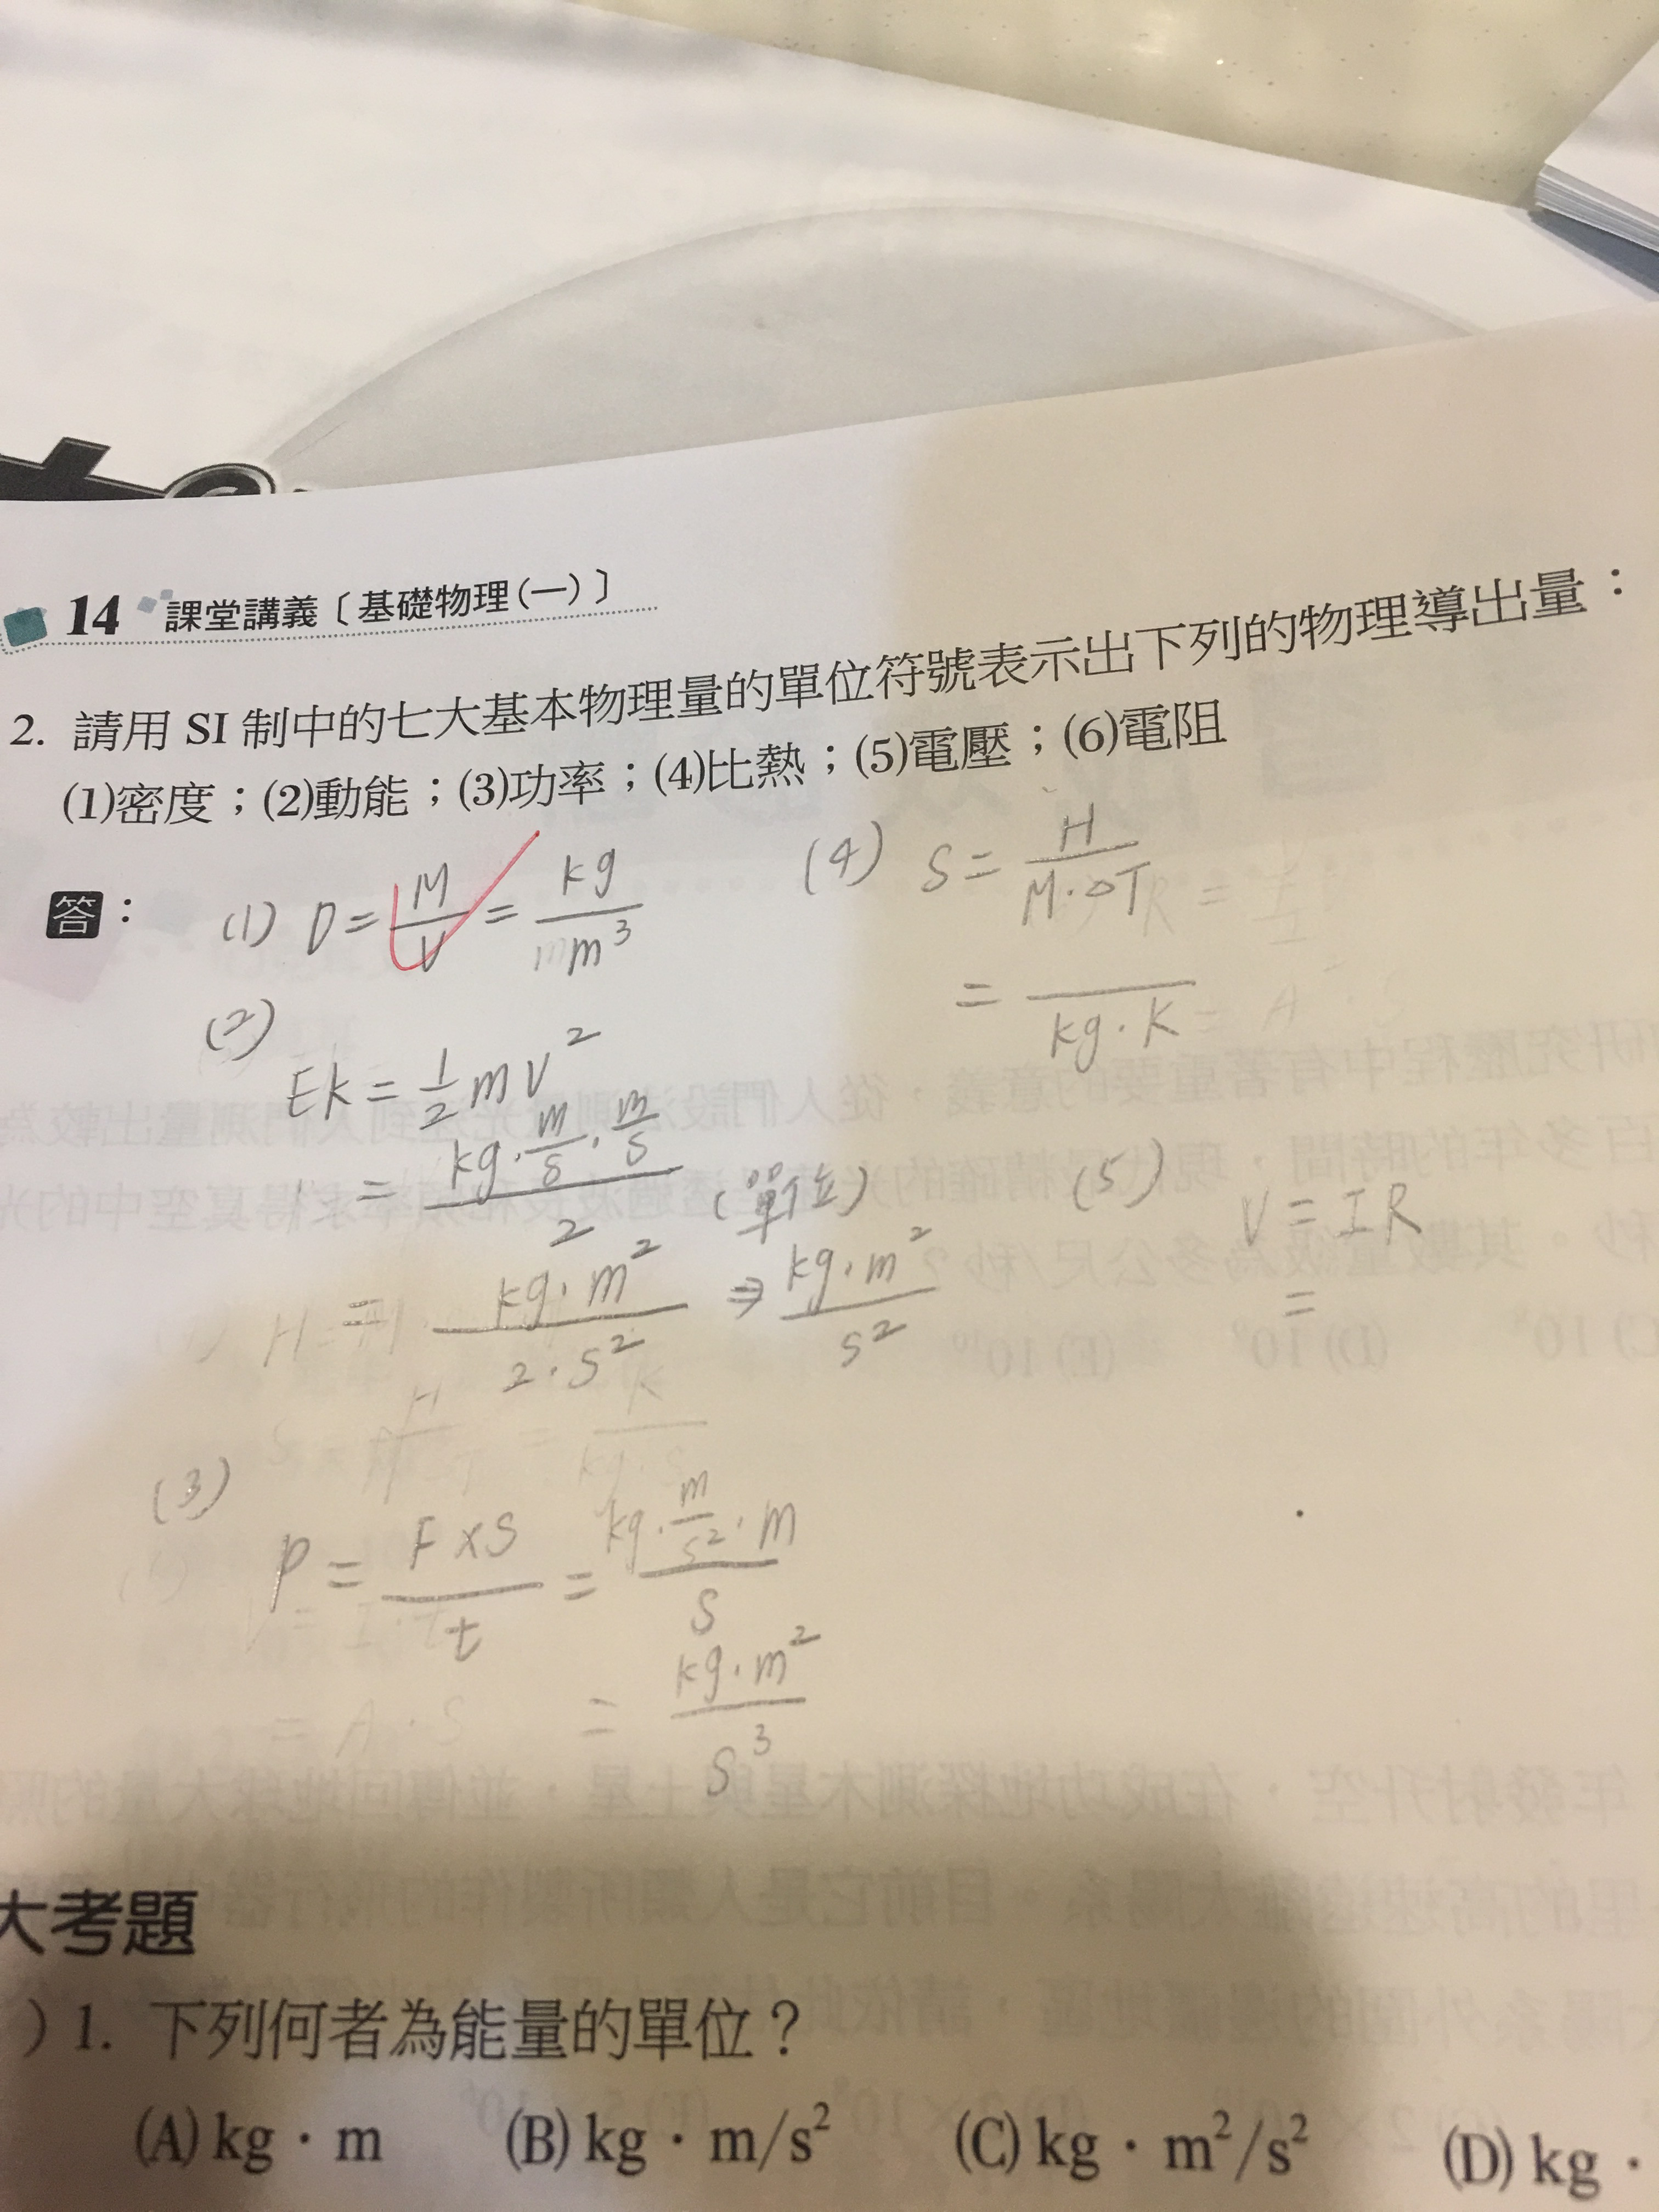 14 課堂講義〔基礎物理(一)〕
2. 請用 SI 制中的七大基本物理量的單位符號表示出下列的物理導出量：
(1)密度；(2)動能；(3)功率；(4)比熱；(5)電壓；(6)電阻
答：
(1) D = M/V = kg/m³
(2)
Ek = 1/2 mV²
= (kg · m/s · m/s)/2 (單位)
= kg · m²/(2 · s²) ⇒ kg · m²/s²
(3)
P = (F × S)/t = (kg · m/s² · m)/s
= kg · m²/s³
(4) S = H/(M · ΔT)
= /(kg · K)
(5) V = IR
=
大考題
) 1. 下列何者為能量的單位？
(A) kg · m (B) kg · m/s² (C) kg · m²/s² (D) kg ·